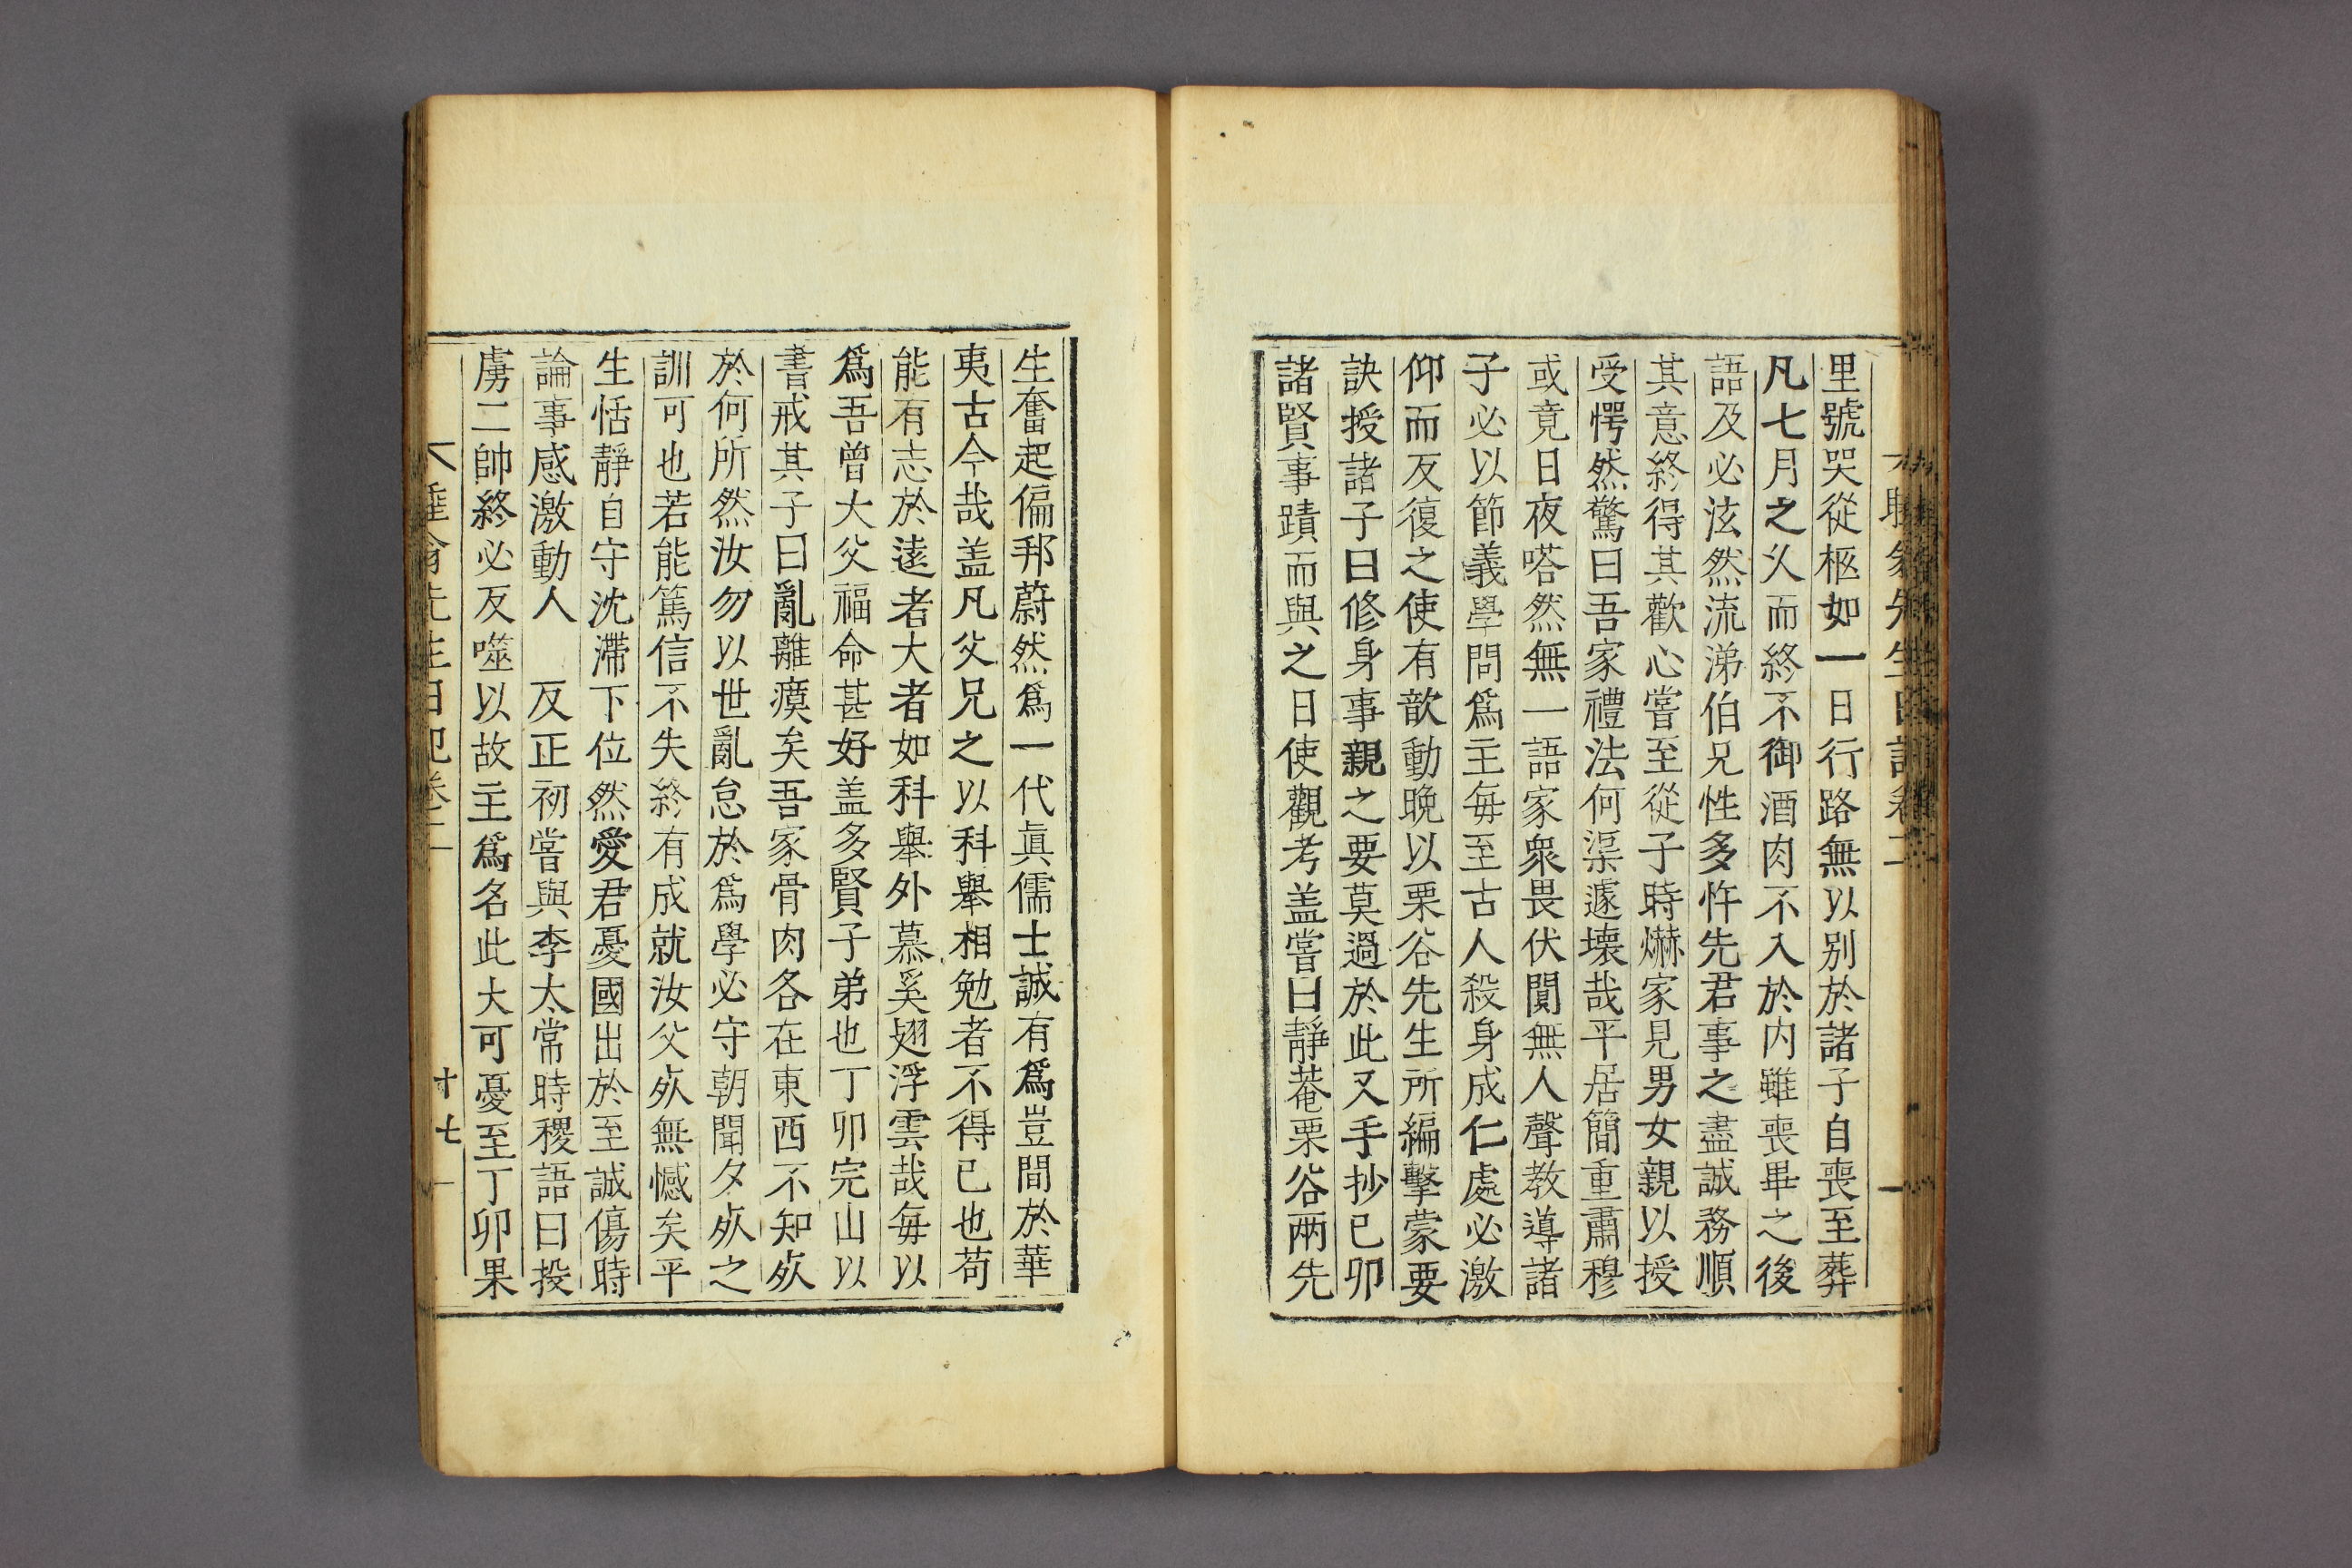 里號哭從柩如一日行路無以別於諸子自喪至葬
凡七月之久而終不御酒肉不入於内雖喪畢之後
語及必泫然流涕伯兄性多忤先君事之盡誠務順
其意終得其歡心嘗至從子時爀家見男女親以授
受愕然驚曰吾家禮法何渠遽壞哉平居簡重肅穆
或竟日夜嗒然無一語家衆畏伏闃無人聲教導諸
子必以節義學問爲主每至古人殺身成仁處必激
仰而反復之使有歆動晩以栗谷先生所編擊蒙要
訣授諸子曰修身事親之要莫過於此又手抄已卯
諸賢事蹟而與之日使觀考盖嘗曰靜菴栗谷兩先
生奮起偏邦蔚然爲一代眞儒士誠有爲豈間於華
夷古今哉盖凡父兄之以科舉相勉者不得已也苟
能有志於遠者大者如科舉外慕奚翅浮雲哉每以
爲吾曾大父福命甚好盖多賢子弟也丁卯完山以
書戒其子曰亂離瘼矣吾家骨肉各在東西不知㱁
於何所然汝勿以世亂怠於爲學必守朝聞夕㱁之
訓可也若能篤信不失終有成就汝父㱁無憾矣平
生恬靜自守沈滯下位然愛君憂國出於至誠傷時
論事感激動人　反正初嘗與李太常時稷語曰投
虜二帥終必反噬以故主爲名此大可憂至丁卯果
先生日記卷二
十七